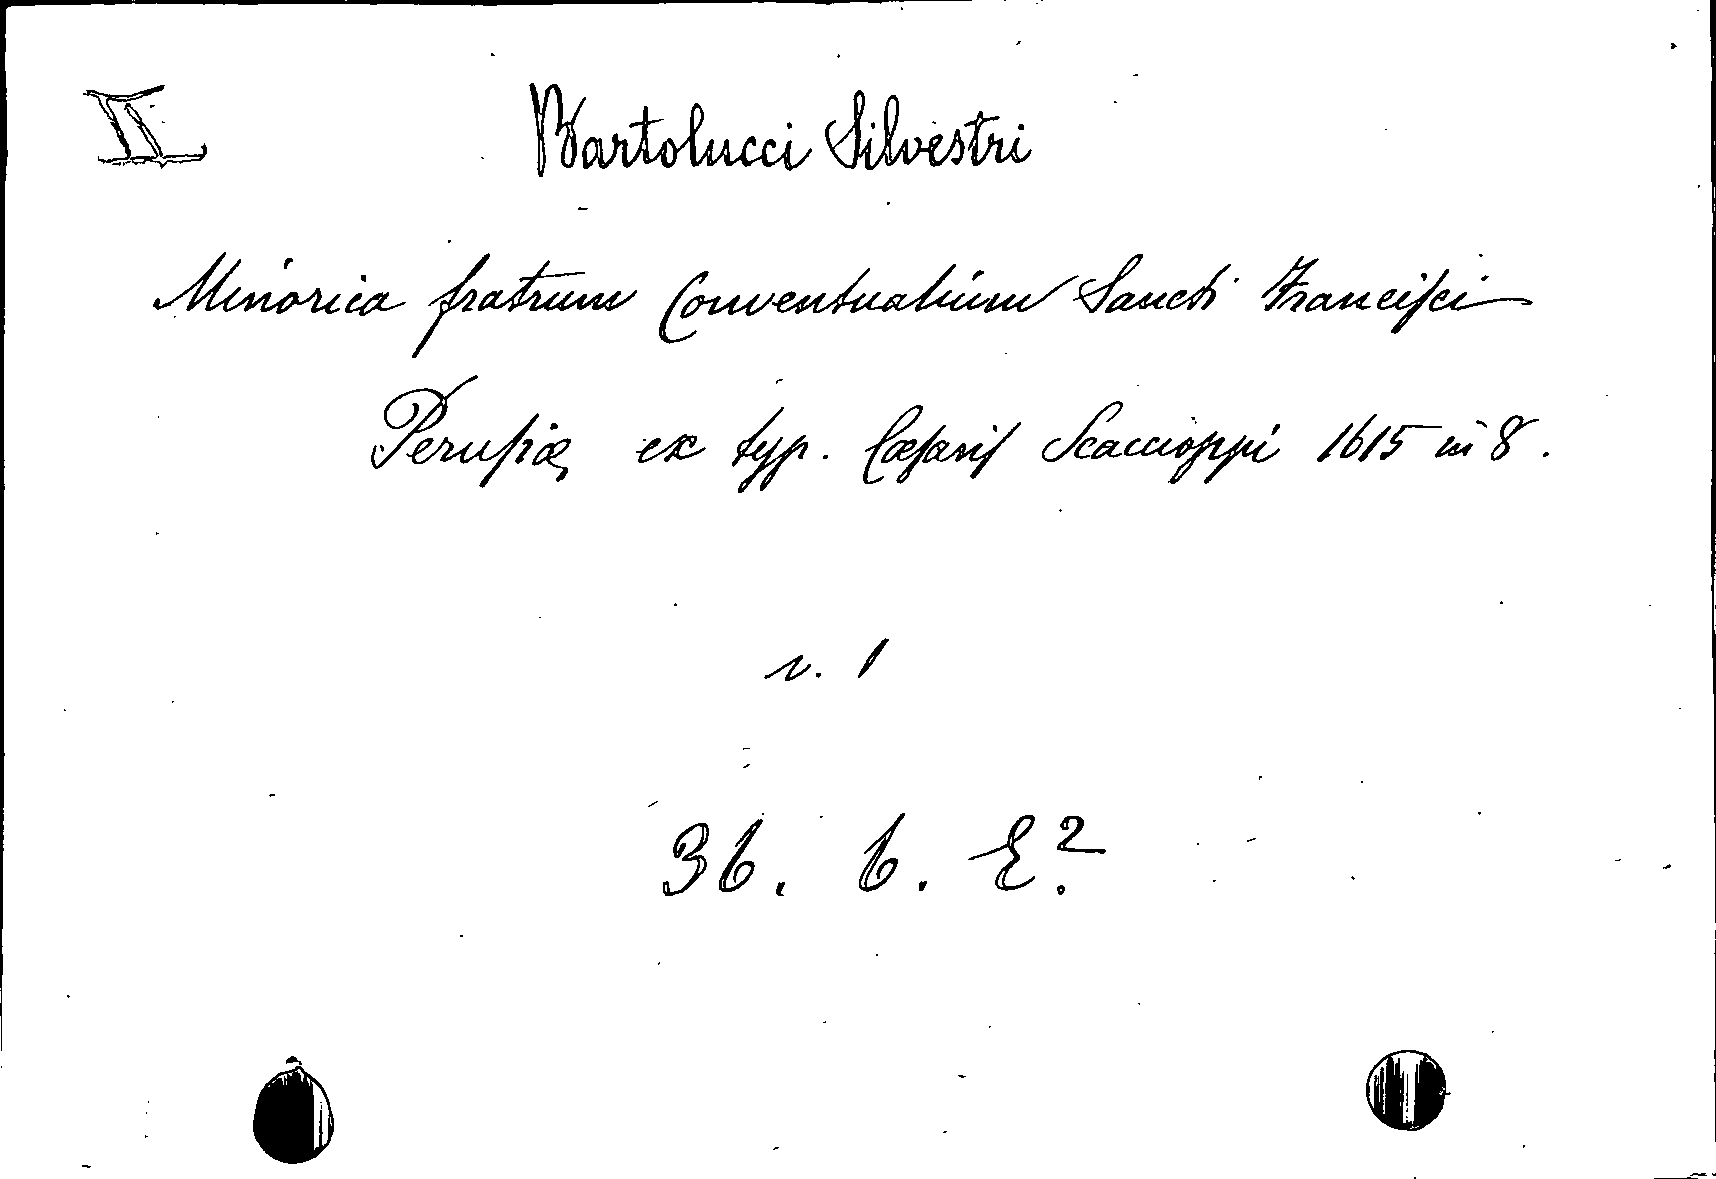 II
Bartolucci Silvestri
Minorica fratrum Conventualium Sancti Franciſci
Peruſiæ ex typ. Cæſariſ Scaccioppi 1615 in 8.
v. 1
36. 6. E².